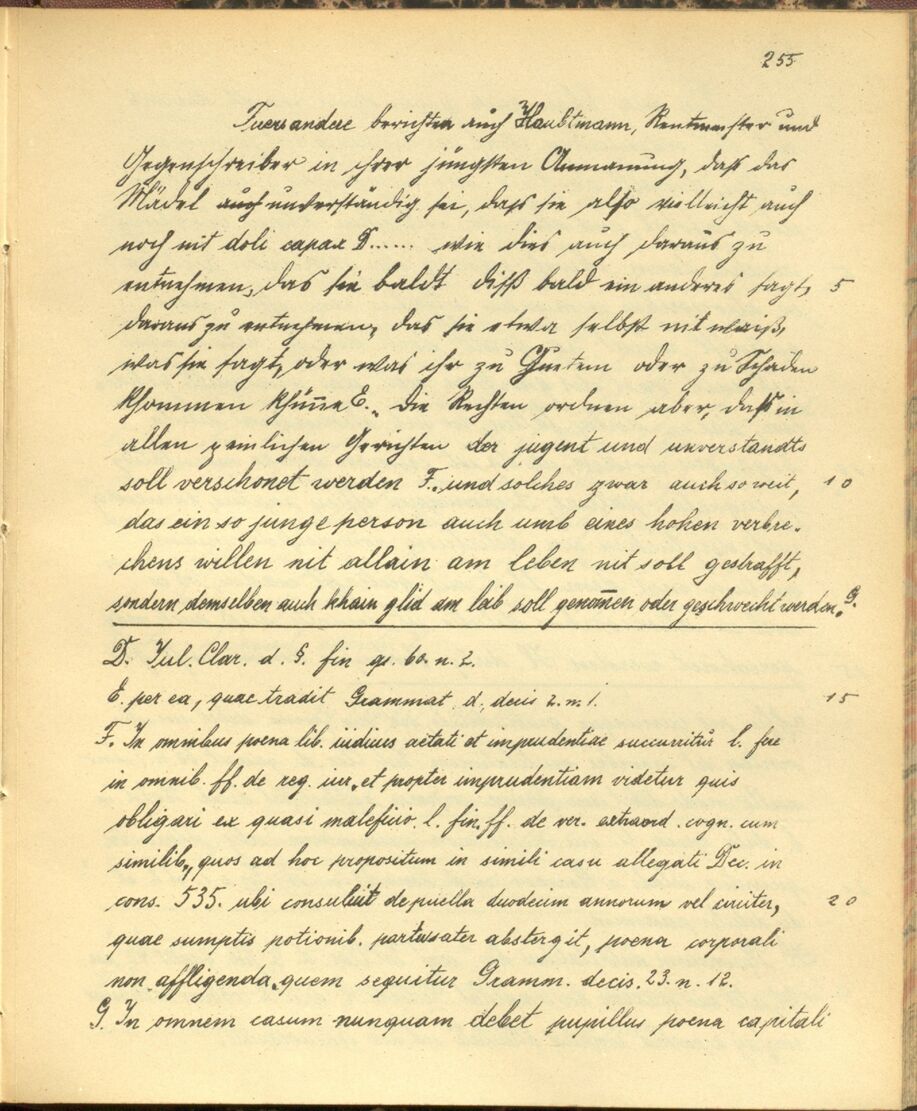 255
Fuers andere berichten auch Haubtmann, Rentmeister und
Gegenschreiber in ihrer jüngsten Anmanung, daß das
Mädel auch underständig sei, daß sie also vielleicht auch
noch nit doli capax D...... wie dies auch daraus zu
entnehmen, das sie baldt diß bald ein anderes sagt, 5
daraus zu entnehmen, das sie etwa selbst nit waiß,
was sie sagt, oder was ihr zu Guetem oder zu Schaden
khommen khünne E., die Rechten ordnen aber, daß in
allen peinlichen Gerichten der jugent und unverstandts
soll verschonet werden F., und solches zwar auch so weit, 10
das ein so junge person auch umb eines hohen verbre-
chens willen nit allain am leben nit soll gestrafft,
sondern demselben auch khain glid am leib soll genom̄en oder geschwecht werden. G.
D. Jul. Clar. d. §. fin qs. 60. n. 2.
E. per ea, quae tradit Grammat. d., decis 2. n. 1. 15
F. In omnibus poena lib. iudiciis aetati et imprudentiae succurritur l. fere
in omnib. ff. de reg. iur., et propter imprudentiam videtur quis
obligari ex quasi maleficio. l. fin. ff. de ver. extraord. cogn. cum
similib., quos ad hoc propositum in simili casu allegati Dec. in
cons. 535. ubi consuluit de puella duodecim annorum vel circiter, 20
quae sumptis potionib. abstergit, poena corporali
non affligenda, quem sequitur Gramm. decis. 23. n. 12.
G. In omnem casum nunquam debet pupillus poena capitali